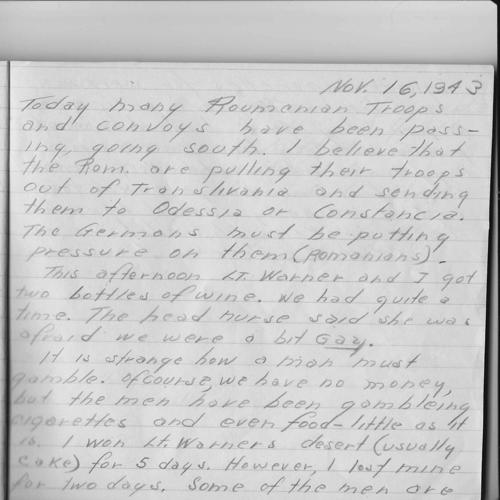 Nov. 16, 1943
Today many Roumanian Troops
and convoys have been pass-
ing, going south. I believe that
the Rom. are pulling their troops
out of Transilvania and sending
them to Odessia or Constancia.
The Germans must be putting
pressure on them (Romanians).
This afternoon Lt. Warner and I got
two bottles of wine. We had quite a
time. The head nurse said she was
afraid we were a bit Gay.
It is strange how a man must
gamble. Ofcourse, we have no money,
but the men have been gambleing
cigarettes and even food-little as it
is. I won Lt. Warners desert (usually
cake) for 5 days. However, I lost mine
for two days. Some of the men are